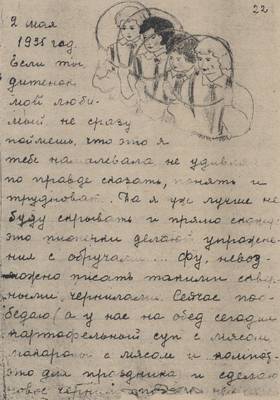 22
2 мая
1935 год
Если ты
дитенок
мой люби-
мый не сразу
поймешь, что это я
тебе намалевала не удивляй
по правде сказать, понять и
трудновато. Да я уж лучше не
буду скрывать и прямо скажу
это пионерки делают упражне-
ния с обручами... Фу, невоз-
можно писать такими сквер-
ными, чернилами. Сейчас пообе-
бедаю (а у нас на обед сегодня
картофельный суп с мясом,
макароны с мясом и компот-
это для праздника и сделаю
новое чернил